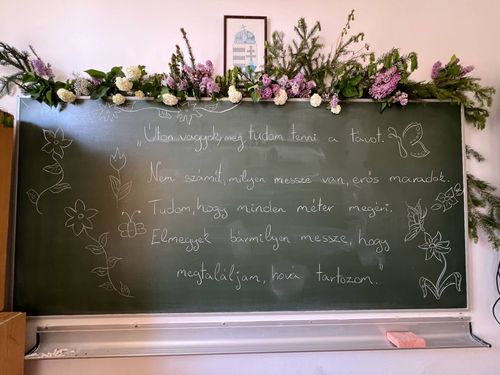 "Úton vagyok, meg tudom tenni a távot.
Nem számít, milyen messze van, erős maradok.
Tudom, hogy minden méter megéri.
Elmegyek bármilyen messze, hogy
megtaláljam, hová tartozom."